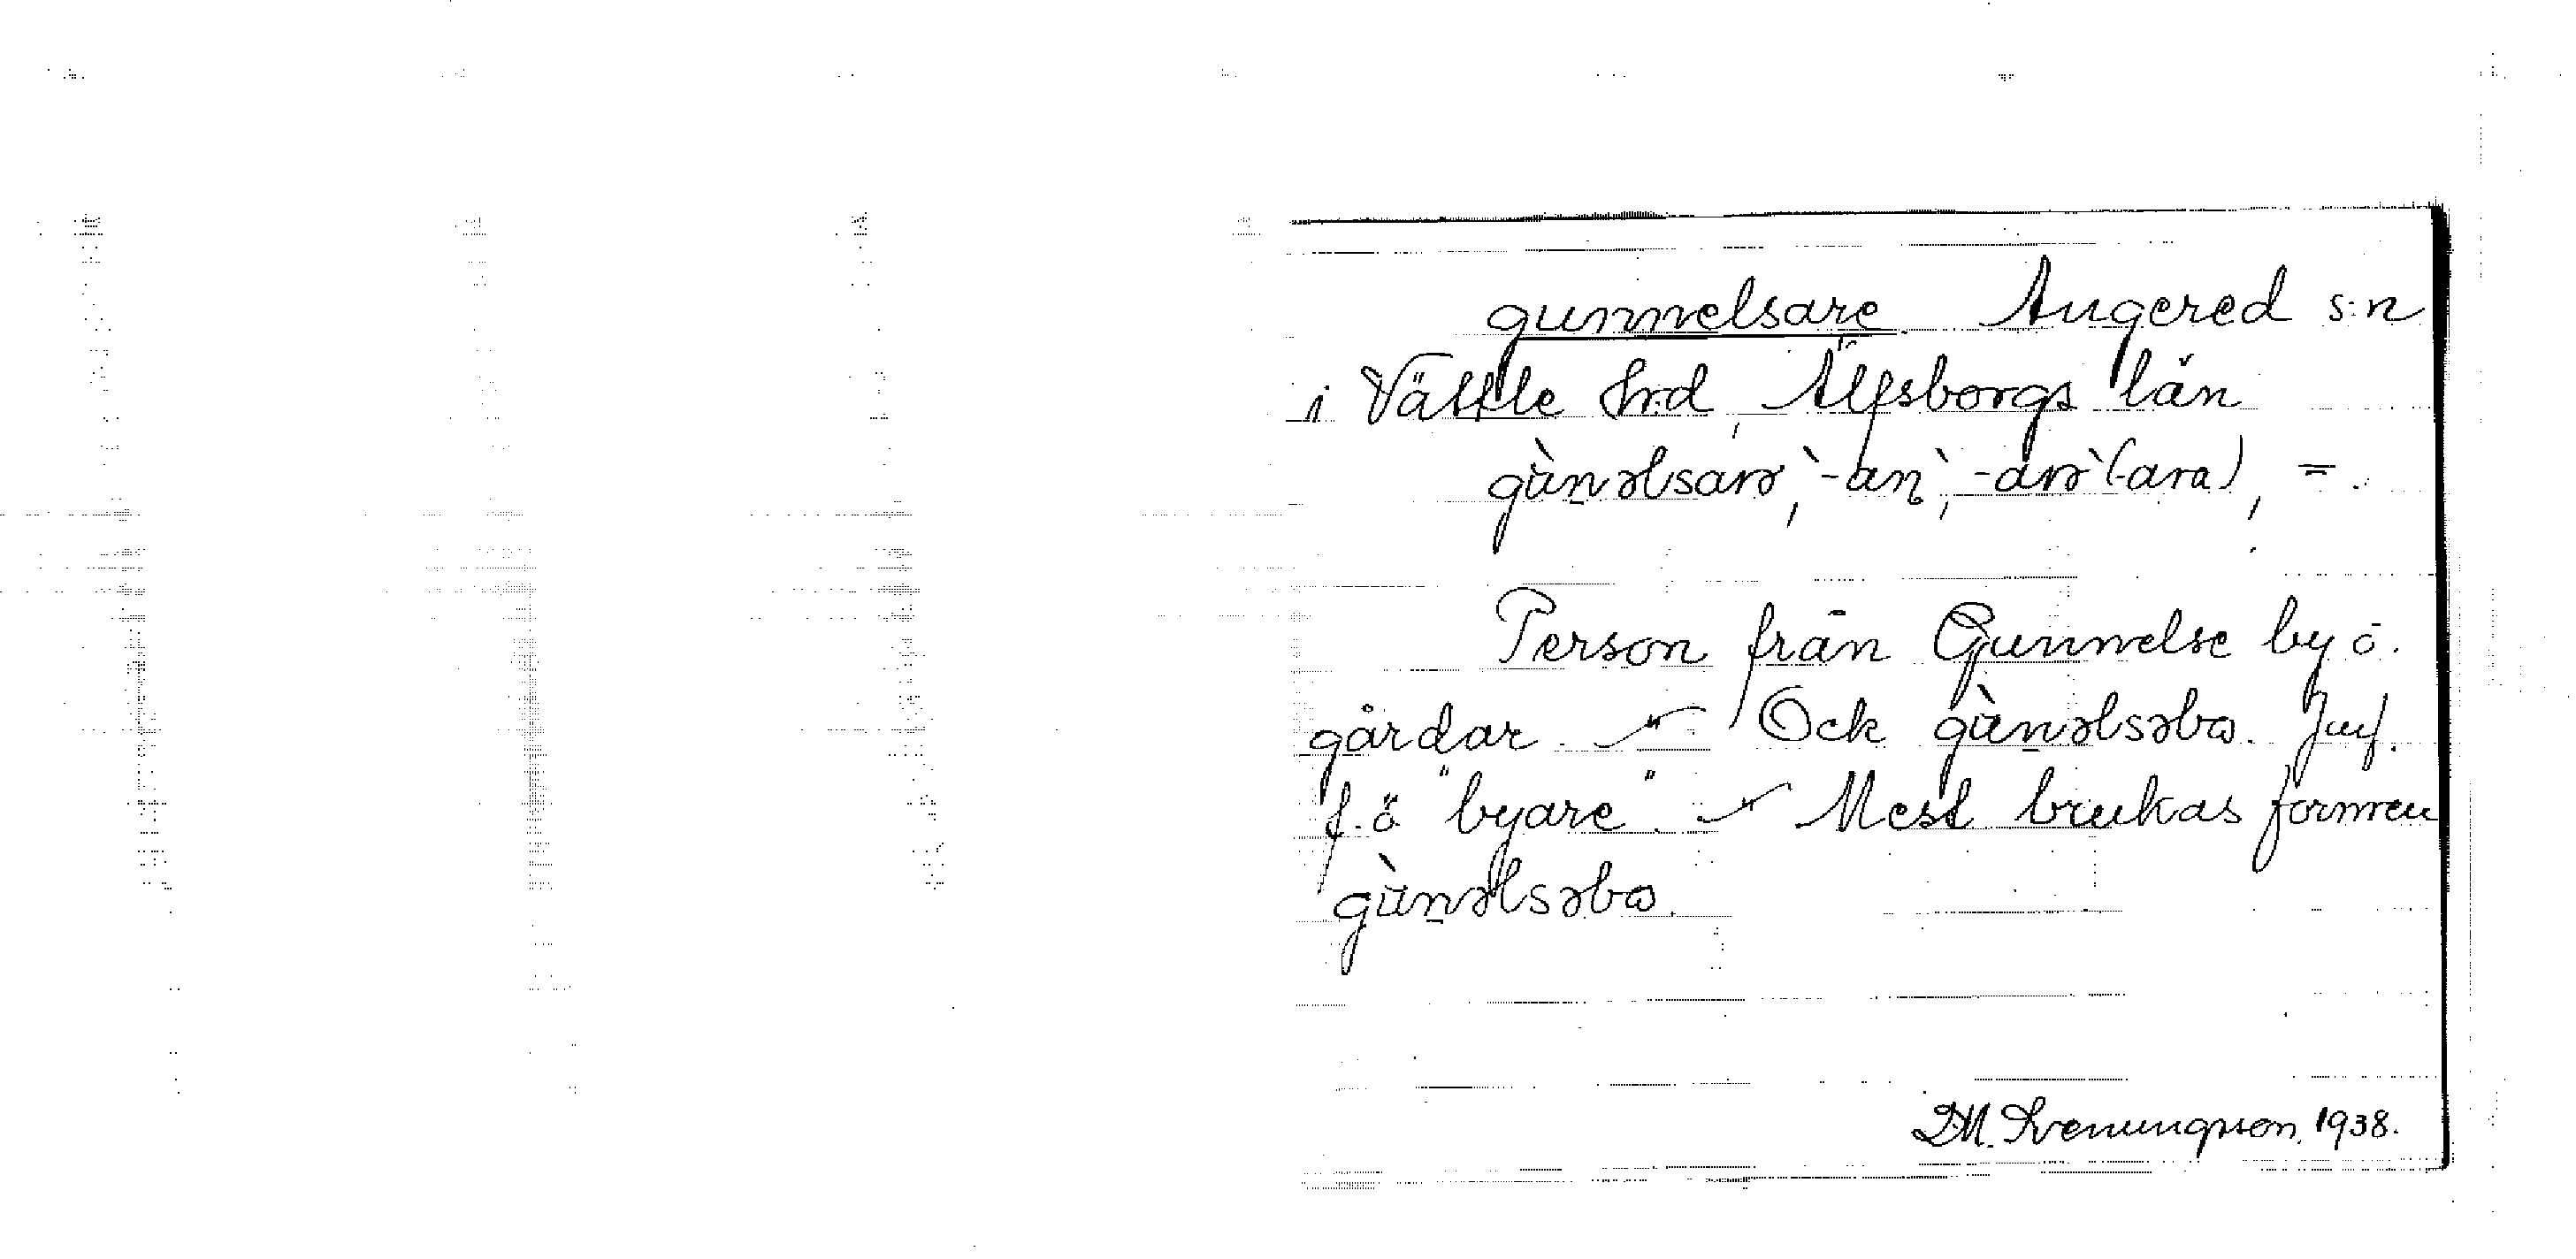 gunnelsare. Angered s:n
i Vättle hrd, Älfsborgs län
gùnəlsarə, -an, -arə (-ara), =.
Person från Gunnelse by o.
gårdar. – " – Ock gùnəlsəbo. Jmf.
f.ö "byare". – " – Mest brukas formen
gùnəlsəbo.
D.M. Svenungsson. 1938.